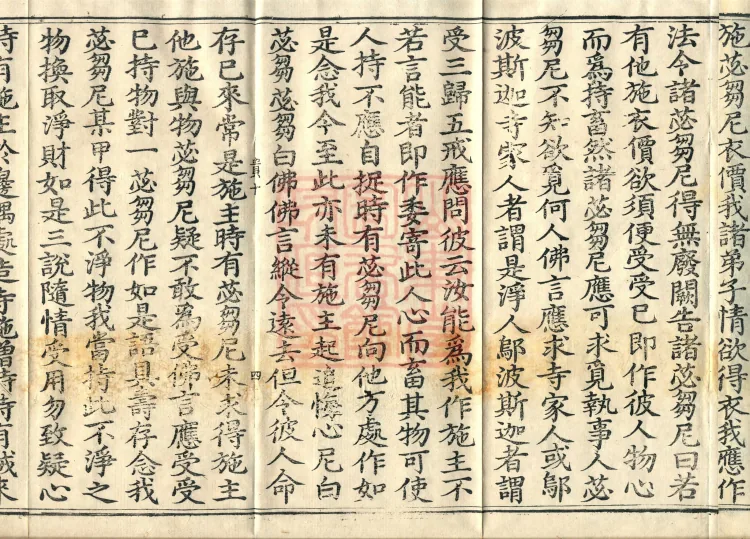 施苾芻尼衣價我諸弟子情欲得衣我應作
法令諸苾芻尼得無廢闕告諸苾芻尼曰若
有他施衣價欲須便受受已即作彼人物心
而爲持畜然諸苾芻尼應可求覓執事人苾
芻尼不知欲覓何人佛言應求寺家人或鄔
波斯迦寺家人者謂是淨人鄔波斯迦者謂
受三歸五戒應問彼云汝能爲我作施主不
若言能者即作委寄此人心而畜其物可使
人持不應自捉時有苾芻尼向他方處作如
是念我今至此亦未有施主起追悔心尼白
苾芻苾芻白佛佛言縱令遠去但令彼人命
存已來常是施主時有苾芻尼未求得施主
他施與物苾芻尼疑不敢爲受佛言應受受
已持物對一苾芻尼作如是語具壽存念我
苾芻尼某甲得此不淨物我當持此不淨之
物換取淨財如是三說隨情受用勿致疑心
時有施主於邊遇處造寺施僧時時有賊來
貞十
四